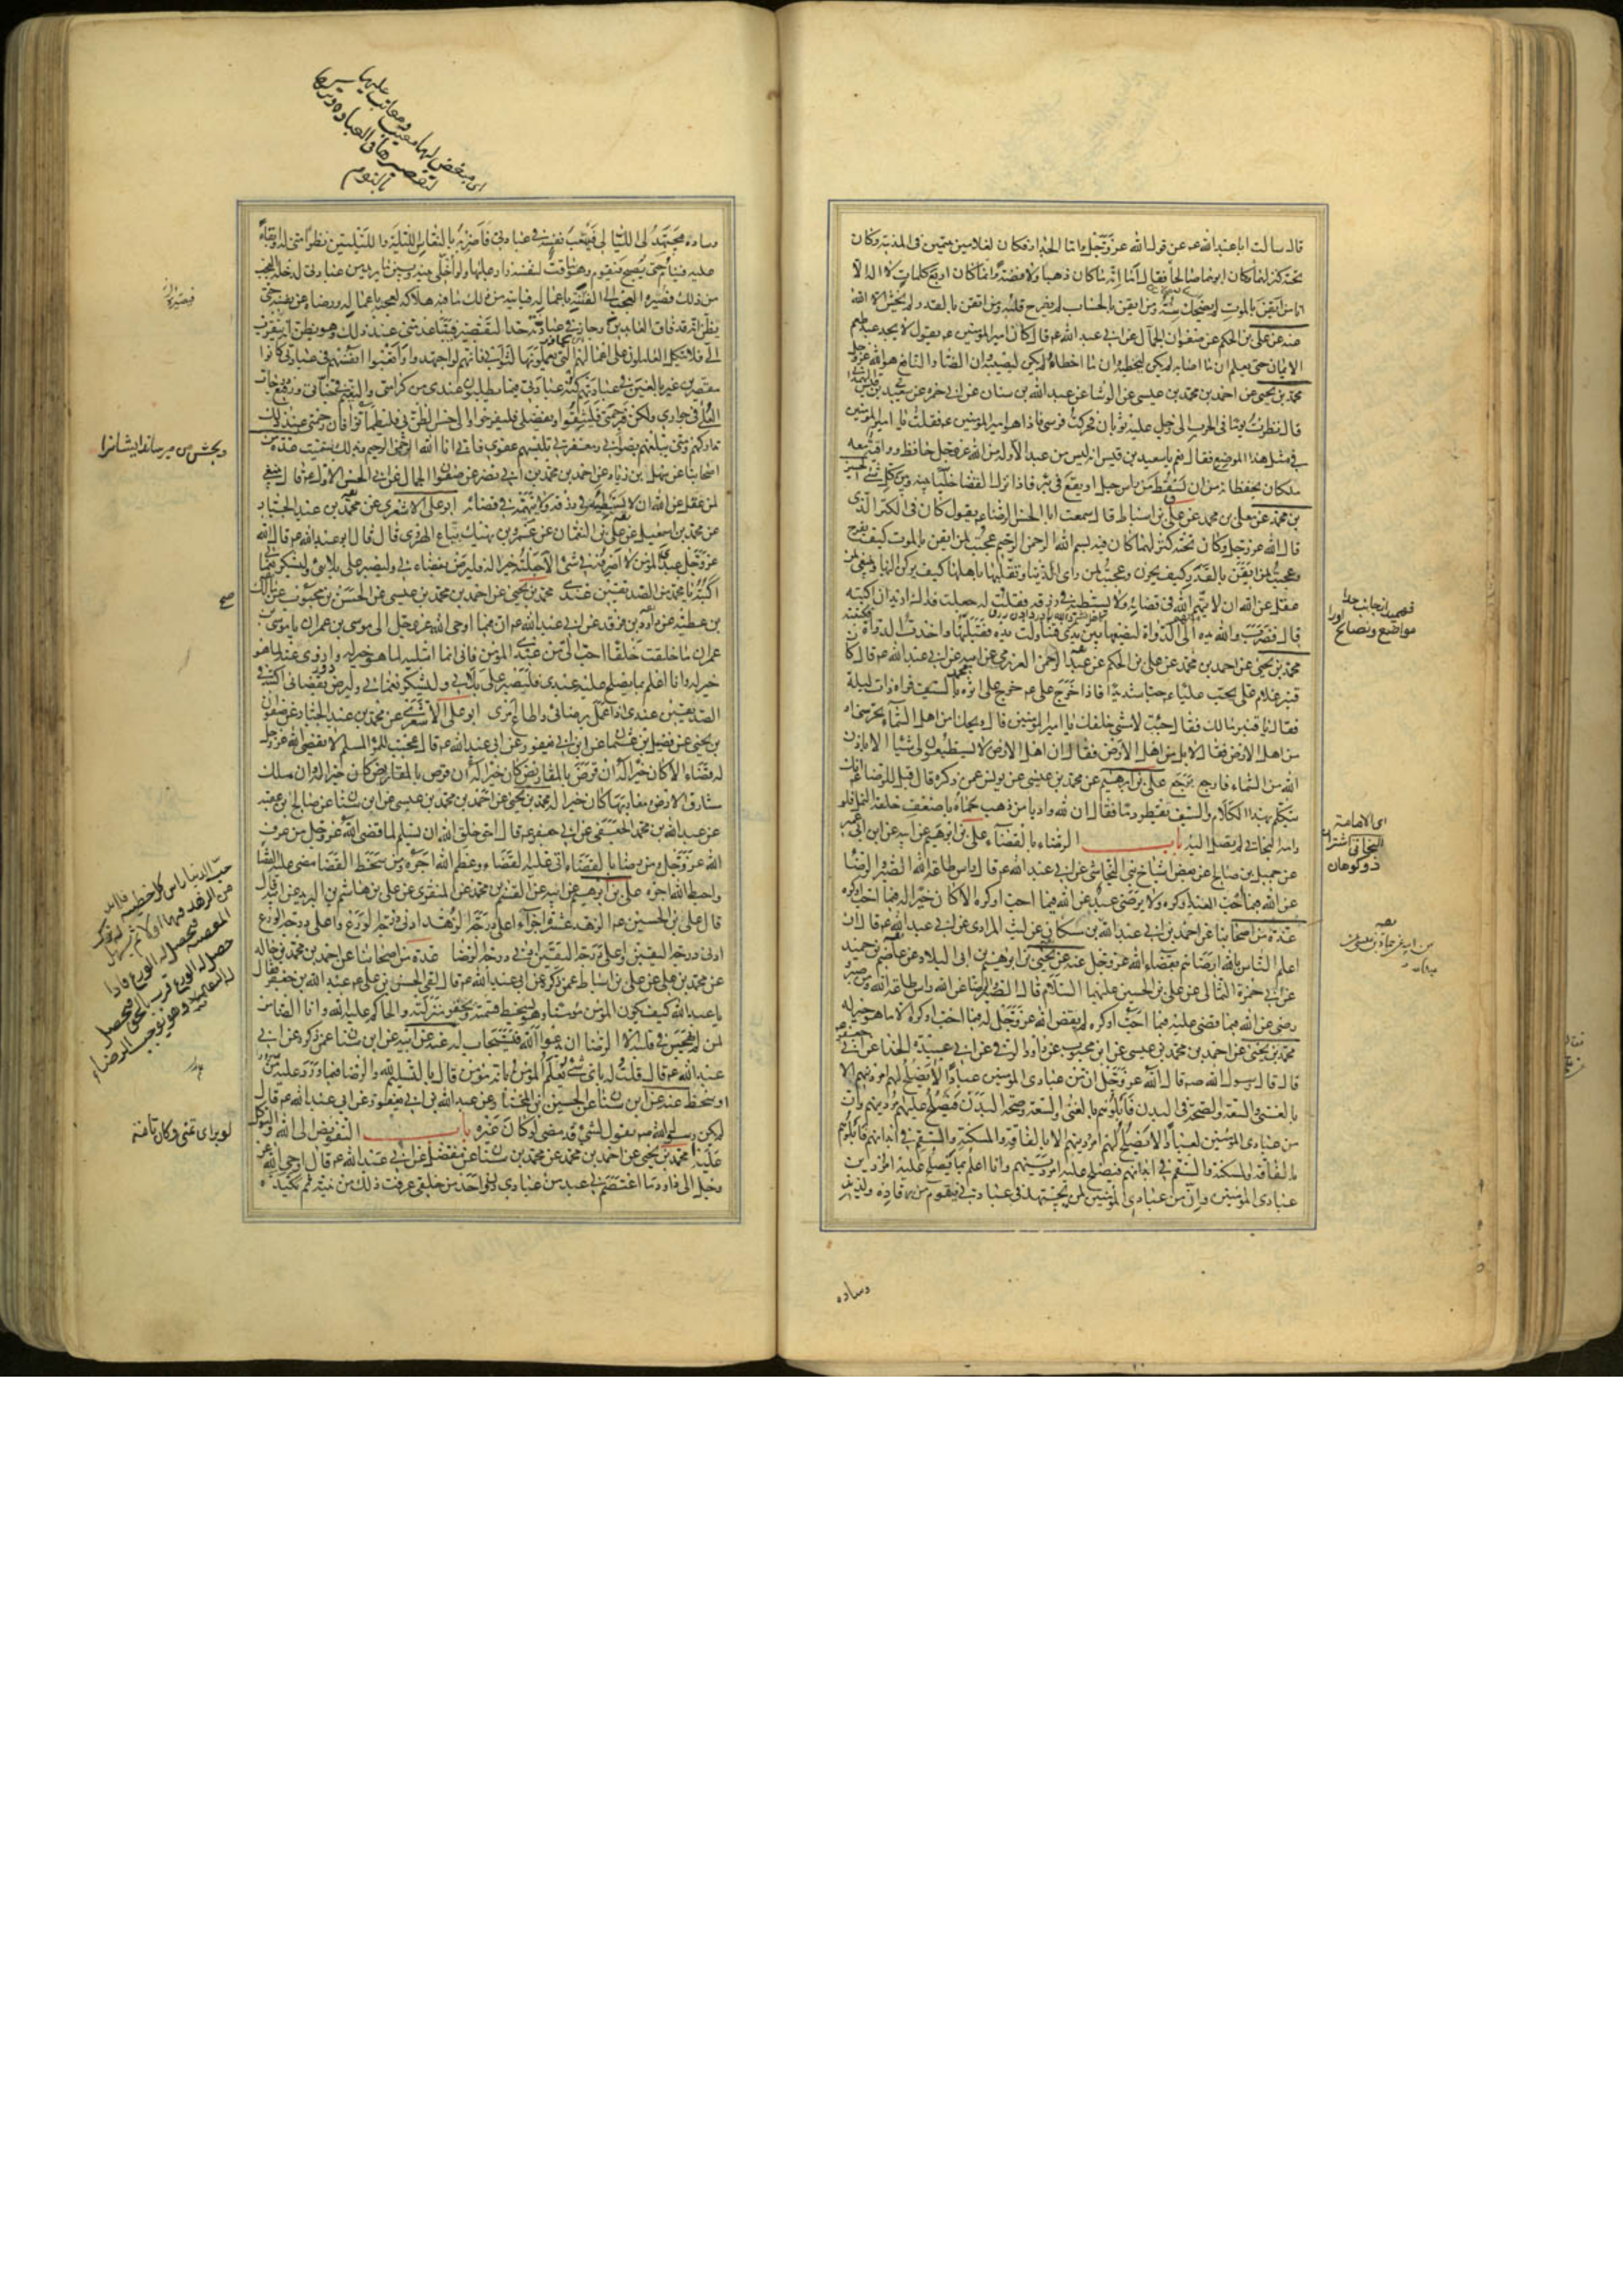 قال سالت ابا عبد الله عم عن قول الله عز وجل واما الجدار فكان لغلامين يتيمين في المدينة وكان
تحته كنز لهما وكان ابوهما صالحا فقال اما انه ما كان ذهبا ولا فضة وانما كان اربع كلمات لا اله الا
انا من ايقن بالموت لم يضحك سنه ومن ايقن بالحساب لم يفرح قلبه ومن ايقن بالقدر لم يخش الا الله
عنه عن علي بن الحكم عن صفوان الجمال عن ابي عبد الله عم قال كان امير المؤمنين عم يقول لا يجد عبد طعم
الايمان حتى يعلم ان ما اصابه لم يكن ليخطئه وان ما اخطاه لم يكن ليصيبه وان الضار النافع هو الله عز وجل
محمد بن يحيى عن احمد بن محمد بن عيسى عن الوشا عن عبد الله بن سنان عن ابي حمزه عن سعيد بن قيس
قال نظرت يوما في الحرب الى رجل عليه ثوبان فحركت فرسي فاذا هو امير المؤمنين عم فقلت يا امير المؤمنين
في مثل هذا الموضع فقال نعم يا سعيد بن قيس انه ليس من عبد الا وله من الله عز وجل حافظ وواقية معه
ملكان يحفظانه من ان يسقط من راس جبل او يقع في بئر فاذا نزل القضا خليا بينه وبين كل شئ
بن محمد عن معلى بن محمد عن علي بن اسباط قال سمعت ابا الحسن الرضا عم يقول كان في الكنز الذي
قال الله عز وجل وكان تحته كنز لهما كان فيه بسم الله الرحمن الرحيم عجبت لمن ايقن بالموت كيف يفرح
وعجبت لمن ايقن بالقدر كيف يحزن وعجبت لمن راى الدنيا وتقلبها باهلها كيف يركن اليها وينبغي لمن
عقل عن الله ان لا يتهم الله في قضائه ولا يستبطئه في رزقه فقلت له جعلت فداك اريد ان اكتبه
قال فضرب والله يده الى الدواة ليضعها بين يدي فتناولت يده فقبلتها واخذت الدواة
محمد بن يحيى عن احمد بن محمد عن علي بن الحكم عن عبد الرحمن العرزمي عن ابيه عن ابي عبد الله عم قال كان
قنبر غلام علي يحب عليا عم حبا شديدا فاذا خرج علي عم خرج على اثره بالسيف فراه ذات ليلة
فقال يا قنبر ما لك فقال جئت لامشي خلفك يا امير المؤمنين قال ويحك امن اهل السماء تحرسني ام
من اهل الارض فقال لا بل من اهل الارض فقال ان اهل الارض لا يستطيعون لي شيئا الا باذن
الله من السماء فارجع فرجع علي بن ابرهيم عن محمد بن عيسى عن يونس عمن ذكره قال قيل للرضا عم انك
تتكلم بهذا الكلام والسيف يقطر دما فقال ان لله واديا من ذهب حماه باضعف خلقه النمل فلو
رامه البخاتي لم يصل اليه باب الرضاء بالقضاء علي بن ابرهيم عن ابيه عن ابن ابي عمير
عن جميل بن صالح عن بعض اشياخ بني النجاشي عن ابي عبد الله عم قال راس طاعة الله الصبر والرضا
عن الله فيما احب العبد او كره ولا يرضى عبد عن الله فيما احب او كره الا كان خيرا له فيما احب او كره
عدة من اصحابنا عن احمد بن ابي عبد الله عن ليث المرادي عن ابي عبد الله عم قال ان
اعلم الناس بالله ارضاهم بقضاء الله عز وجل عنه عن يحيى بن ابرهيم بن ابي البلاد عن عاصم بن حميد
عن ابي حمزة الثمالي عن علي بن الحسين عليهما السلام قال الصبر والرضا عن الله راس طاعة الله ومن صبر و
رضي عن الله فيما قضى عليه فيما احب او كره لم يقض الله عز وجل له فيما احب او كره الا ما هو خير له
محمد بن يحيى عن احمد بن محمد بن عيسى عن ابن محبوب عن داود الرقي عن ابي عبيدة الحذا عن ابي جعفر
قال قال رسول الله صم قال الله عز وجل ان من عبادي المؤمنين عبادا لا يصلح لهم امر دينهم الا
بالغنى والسعة والصحة في البدن فابلوهم بالغنى والسعة وصحة البدن فيصلح عليهم امر دينهم وان
من عبادي المؤمنين لعبادا لا يصلح لهم امر دينهم الا بالفاقة والمسكنة والسقم في ابدانهم فابلوهم
بالفاقة والمسكنة والسقم في ابدانهم فيصلح عليهم امر دينهم وانا اعلم بما يصلح عليه امر دين
عبادي المؤمنين وان من عبادي المؤمنين لمن يجتهد في عبادتي فيقوم من رقاده ولذيذ
وساده
اي الاهامة
البخاتي اشتران
ذو كوهان
مواضع ونصائح
وساده فيجتهد لي الليالي فيتعب نفسه في عبادتي فاضربه بالنعاس الليلة والليلتين نظرا مني له وابقاء
عليه فينام حتى يصبح فيقوم وهو ماقت لنفسه زار عليها ولو اخلي بينه وبين ما يريد من عبادتي لدخله العجب
من ذلك فيصيره العجب الى الفتنة باعماله فياتيه من ذلك ما فيه هلاكه لعجبه باعماله ورضاه عن نفسه حتى
يظن انه قد فاق العابدين وجاز في عبادته حد التقصير فيتباعد مني عند ذلك وهو يظن انه يتقرب
الي فلا يتكل العاملون على اعمالهم التي يعملونها لثوابي فانهم لو اجتهدوا واتعبوا انفسهم في عبادتي كانوا
مقصرين غير بالغين في عبادتهم كنه عبادتي فيما يطلبون عندي من كرامتي والنعيم في جناتي ورفيع درجات
العلى في جواري ولكن فبرحمتي فليثقوا وبفضلي فليفرحوا والى حسن الظن بي فليطمانوا فان رحمتي عند ذلك
تداركهم ومني يبلغهم رضواني ومغفرتي تلبسهم عفوي فاني انا الله الرحمن الرحيم وبذلك تسميت عدة من
اصحابنا عن سهل بن زياد عن احمد بن محمد بن ابي نصر عن صفوان الجمال عن ابي الحسن الاول عم قال ينبغي
لمن عقل عن الله ان لا يستبطئه في رزقه ولا يتهمه في قضائه ابو علي الاشعري عن محمد بن عبد الجبار
عن محمد بن اسمعيل عن علي بن النعمان عن عمرو بن نهيك بياع الهروي قال قال ابو عبد الله عم قال الله
عز وجل عبدي المؤمن لا اصرفه في شئ الا جعلته خيرا له فليرض بقضاءي وليصبر على بلائي وليشكر نعمائي
اكتبه يا محمد من الصديقين عندي محمد بن يحيى عن احمد بن محمد بن عيسى عن الحسن بن محبوب عن مالك
بن عطيه عن داود بن فرقد عن ابي عبد الله عم ان فيما اوحى الله عز وجل الى موسى بن عمران يا موسى بن
عمران ما خلقت خلقا احب الي من عبدي المؤمن فاني انما ابتليه لما هو خير له وازوي عنه لما هو
خير له وانا اعلم بما يصلح عليه عبدي فليصبر على بلائي وليشكر نعمائي وليرض بقضائي اكتبه في
الصديقين عندي اذا عمل برضائي واطاع امري ابو علي الاشعري عن محمد بن عبد الجبار عن صفوان
بن يحيى عن فضيل بن عثمان عن ابن ابي يعفور عن ابي عبد الله عم قال عجبت للمرء المسلم لا يقضي الله عز وجل
له قضاء الا كان خيرا له ان قرض بالمقاريض كان خيرا له وان ملك
مشارق الارض ومغاربها كان خيرا له محمد بن يحيى عن احمد بن محمد بن عيسى عن ابن سنان عن صالح بن عقبه
عن عبد الله بن محمد الجعفي عن ابي جعفر عم قال احق خلق الله ان يسلم لما قضى الله عز وجل من عرف
الله عز وجل ومن رضي بالقضاء اتى عليه القضاء وعظم الله اجره ومن سخط القضا مضى عليه القضا
واحبط الله اجره علي بن ابرهيم عن ابيه عن القسم بن محمد عن المنقري عن علي بن هاشم بن البريد عن ابيه قال
قال علي بن الحسين عم الزهد عشرة اجزاء اعلى درجة الزهد ادنى درجة الورع واعلى درجة الورع
ادنى درجة اليقين واعلى درجة اليقين ادنى درجة الرضا عدة من اصحابنا عن احمد بن محمد بن خالد
عن محمد بن علي عن علي بن اسباط عمن ذكره عن ابي عبد الله عم قال لقي الحسن بن علي عم عبد الله بن جعفر فقال
يا عبد الله كيف يكون المؤمن مؤمنا وهو يسخط قسمه ويحقر منزلته والحاكم عليه الله وانا الضامن
لمن لم يهجس في قلبه الا الرضا ان يدعوا الله فيستجاب له عنه عن ابيه عن ابن سنان عمن ذكره عن ابي
عبد الله عم قال قلت له باي شئ يعلم المؤمن بانه مؤمن قال بالتسليم لله والرضا فيما ورد عليه من
او سخط عنه عن ابيه عن ابن سنان عن الحسين بن المختار عن عبد الله بن ابي يعفور عن ابي عبد الله عم قال
لم يكن رسول الله صم يقول لشئ قد مضى لو كان غيره باب التفويض الى الله والتوكل
عليه محمد بن يحيى عن احمد بن محمد عن محمد بن سنان عن مفضل عن ابي عبد الله عم قال اوحى الله عز
وجل الى داود ما اعتصم بي عبد من عبادي دون احد من خلقي عرفت ذلك من نيته ثم تكيده
اي مبغض لها معيب ومعاتب عليها
لتقصيرها في العباده
بالنوم
وبخشش من ميرساند ايشانرا
صح
حب الدنيا راس كل خطيه